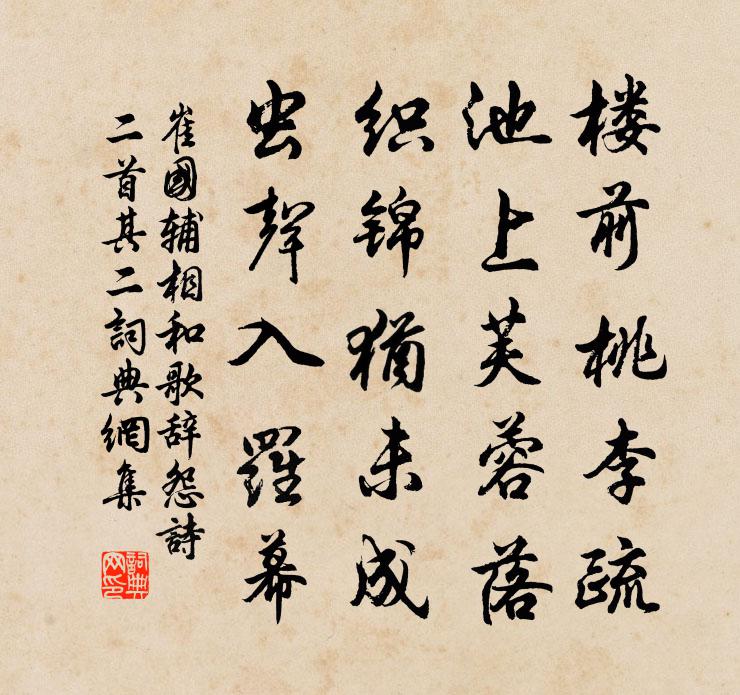 楼前桃李疏
池上芙蓉落
织锦犹未成
虫聲入羅幕
崔國辅相和歌辞怨詩
二首其二詞典網集
詞典
网印